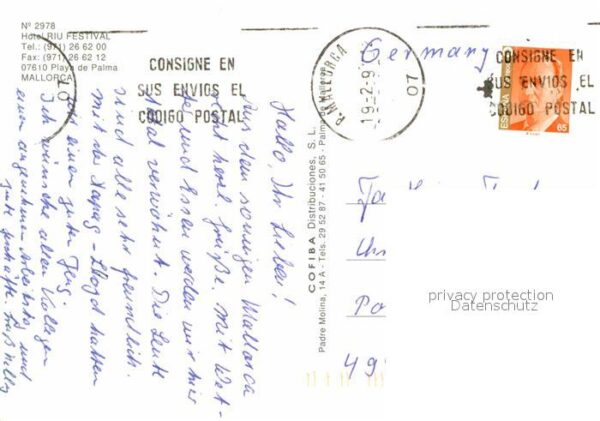 Nº 2978
Hotel RIU FESTIVAL
Tel.: (971) 26 62 00
Fax: (971) 26 62 12
07610 Playa de Palma
MALLORCA
CONSIGNE EN
SUS ENVIOS EL
CODIGO POSTAL
07
P. MALLORCA
19.2.9
07
CONSIGNE EN
SUS ENVIOS EL
CODIGO POSTAL
65
Germany
Hallo, Ihr Lieben!
Aus dem sonnigen Mallorca
Grüße. Mit Wet-
und Essen werden wir hier
verwöhnt. Die Leute
sind alle sehr freundlich.
mit der Hapag-Lloyd hatten
wir einen guten Flug
Ich wünsche allen Kollegen
einen angenehmen und
gute Geschäfte. Gruß
COFIBA Distribuciones, S. L.
Padre Molina, 14 A - Tels. 29 52 87 - 41 50 65 - Palma de Mallorca
Po
49
privacy protection
Datenschutz